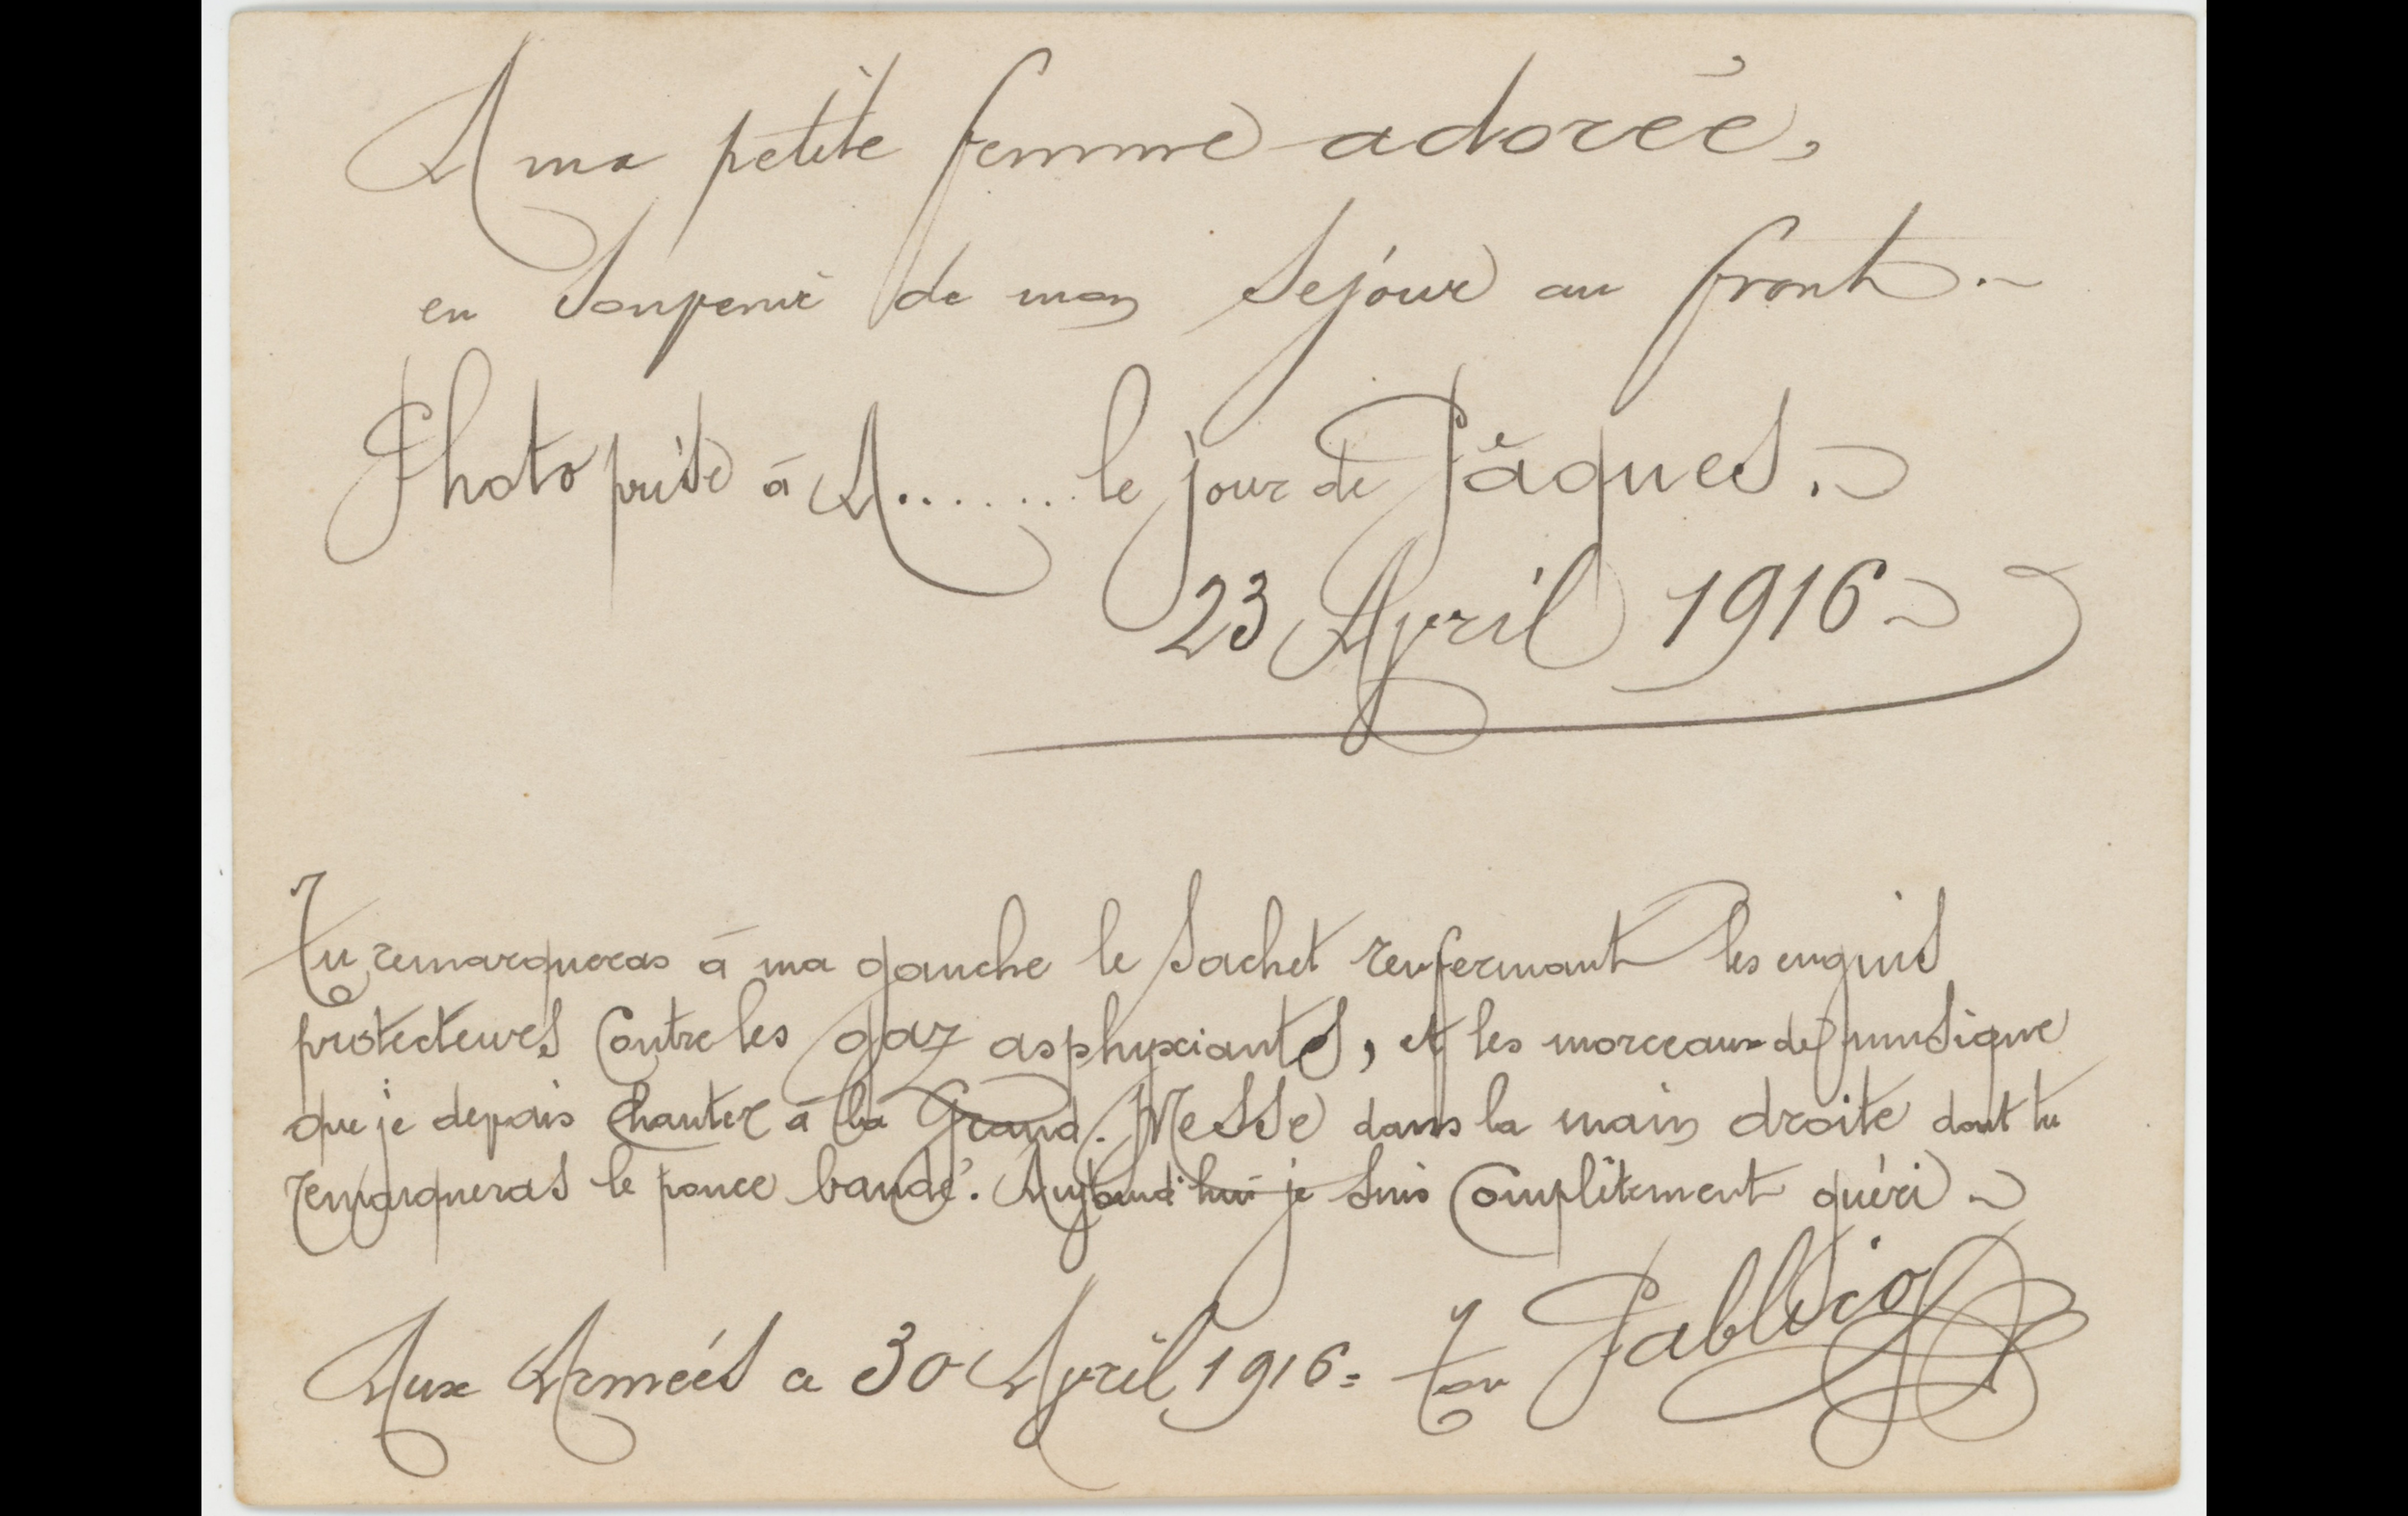 A ma petite femme adorée,
en Souvenir de mon Séjour au front.
Photo prise à A....... le jour de Pâques.
23 Avril 1916
Tu remarqueras à ma gauche le Sachet renfermant les engins
protecteurs Contre les gaz asphyxiants, et les morceaux de musique
que je devais Chanter à la Grand. Messe dans la main droite dont tu
remarqueras le pouce bandé. Aujourd'hui je suis Complètement guéri
Aux Armées a 30 Avril 1916 = ton